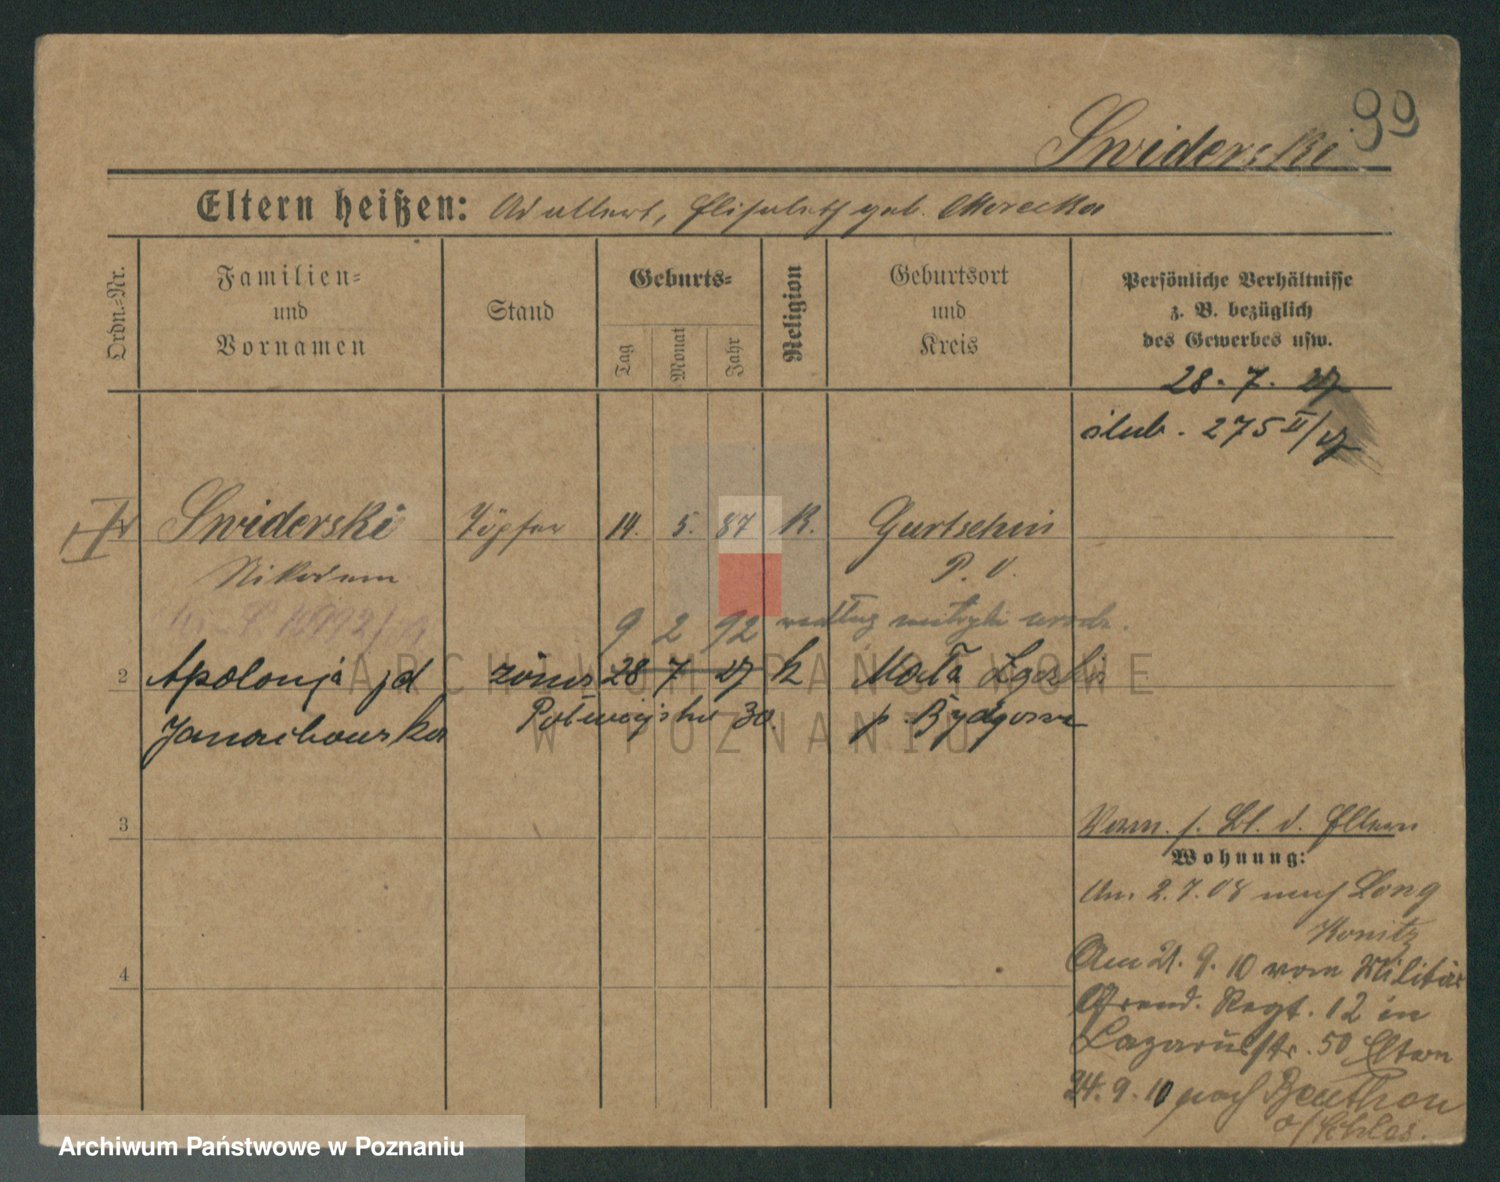 99
Swiderski
Eltern heißen: Adalbert, Elisabeth geb. Morecka
Ordn.-Nr.
Familien- und Vornamen
Stand
Geburts-
Tag Monat Jahr
Religion
Geburtsort und Kreis
Persönliche Verhältnisse
z. B. bezüglich
des Gewerbes usw.
28. 7. 27
ślub. 275 II/27
Swiderski Töpfer 14. 5. 87 K. Gurtschin
Nikodem P. O.
9 2 92 według metryki urodz.
2 Apolonja jd 28 7 27 k Mała
Janachowska 30. p. Bydgoszcz
3
Vorm. s. Bl. d. Eltern
Wohnung:
Am 2.7.08 nach Long
Konitz
4
Am 21. 9. 10 vom Militär
Grend. Regt. 12 in
Lazarusstr. 50 Eltern
24. 9. 10 nach Beuthen
o/Schles.
ARCHIWUM PAŃSTWOWE
W POZNANIU
Archiwum Państwowe w Poznaniu